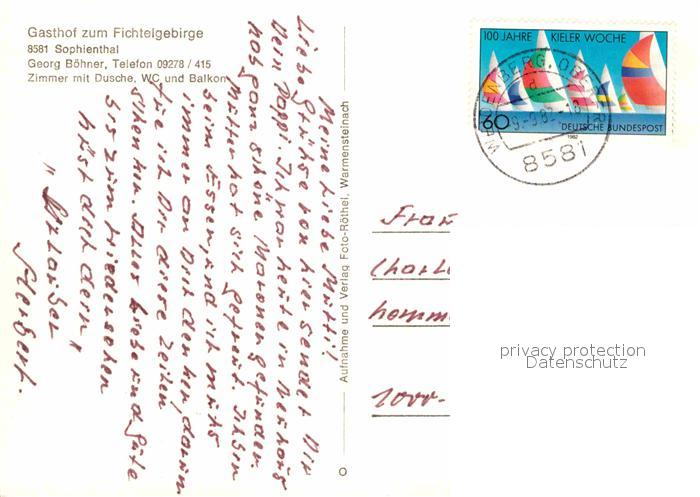 Gasthof zum Fichtelgebirge
8581 Sophienthal
Georg Böhner, Telefon 09278 / 415
Zimmer mit Dusche, WC und Balkon
100 JAHRE KIELER WOCHE
60 DEUTSCHE BUNDESPOST
1982
WEIDENBERG, OBERFR
8581
Meine liebe Mutti!
Liebe Grüsse von hier sendet Dir
Dein Pappi. Ich war heute in
noch ganz schöne Maronen gefunden.
Mutter hat sich gefreut. Ich bin
beim Essen, und ich muß
immer an Dich denken, darum
für ich Dir diese Zeilen
Alles Liebe und Gute
bis zum Wiedersehen
hält dich Dein
Herbert.
Aufnahme und Verlag Foto-Röthel, Warmensteinach
Frau
1000-
privacy protection
Datenschutz